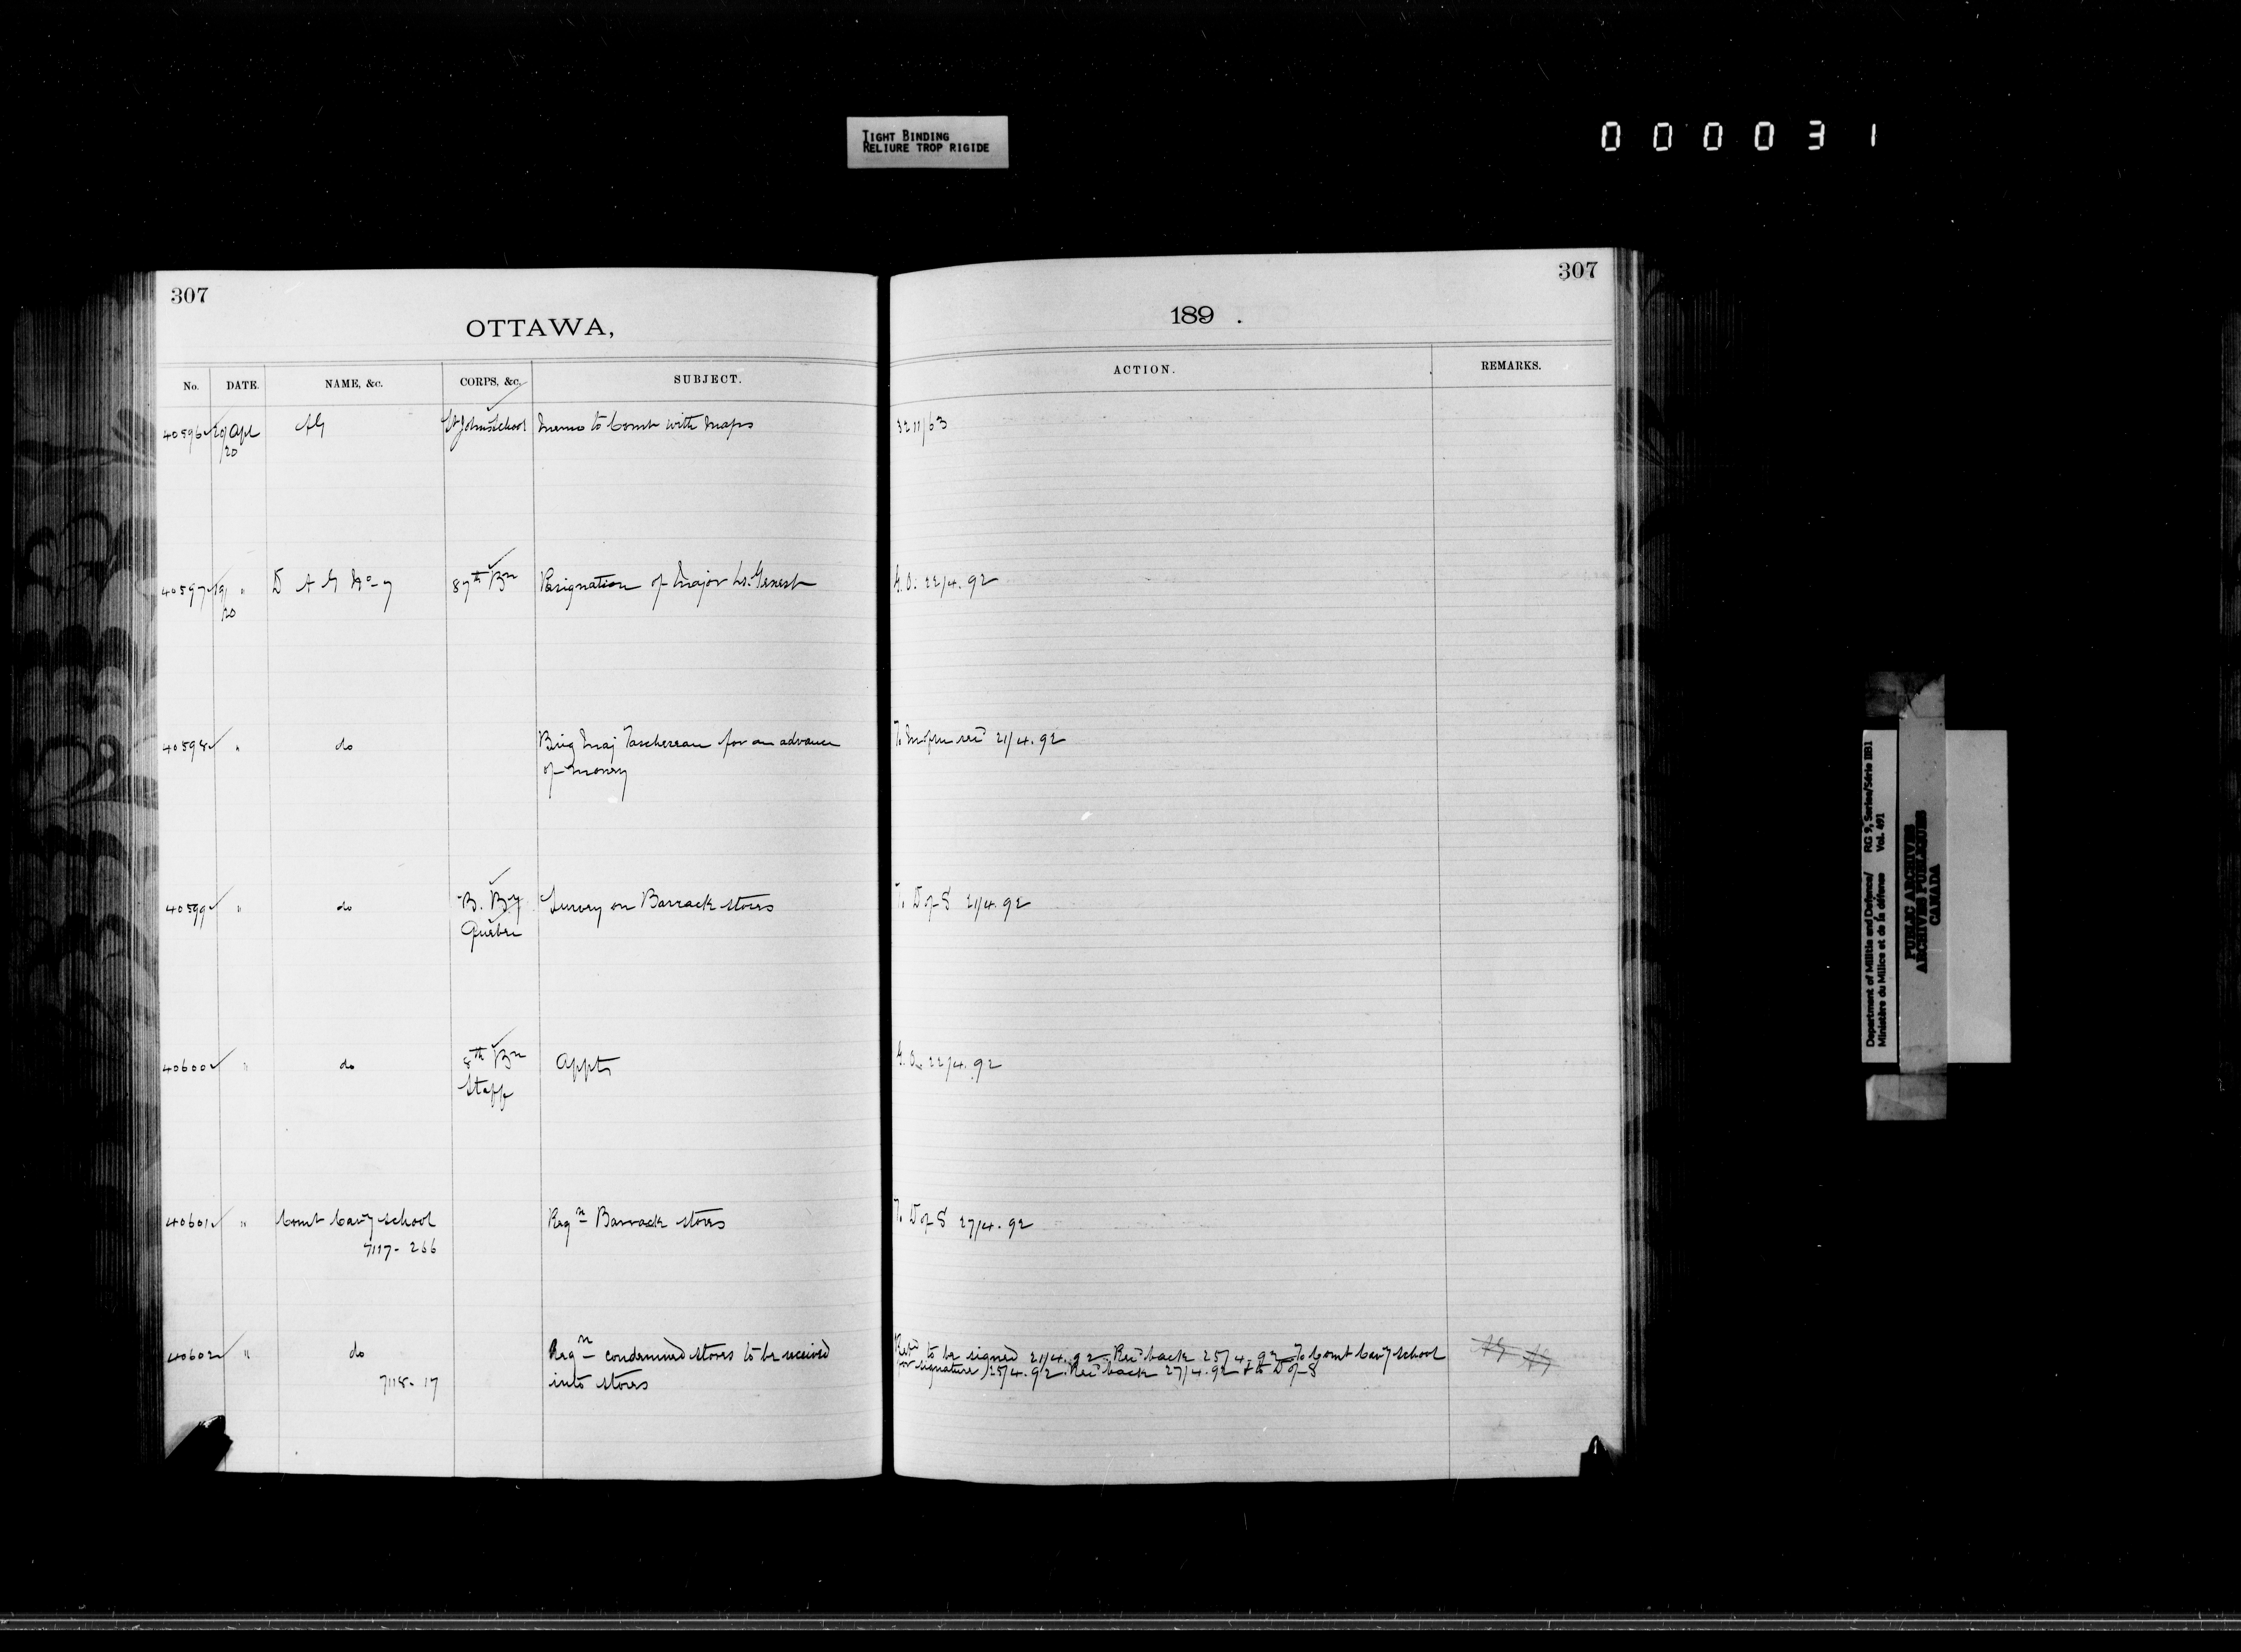 TIGHT BINDING
RELIURE TROP RIGIDE
000031
307
307
OTTAWA,
189 .
No. DATE. NAME, &c. CORPS, &c. SUBJECT. ACTION. REMARKS.
40596 20/20 Apl AG St Johns School Memo to Comt with Maps 3211/63
40597 19/20 " D A G No 7 87th Bn Resignation of Major Ls. Genest G.O. 22/4.92
40598 " do Brig Maj Taschereau for an advance 21/4.92
of money
40599 " do B. By Survey on Barrack stores T. D of S 21/4.92
Quebec
40600 " do 8th Bn Appts G.O. 22/4.92
Staff
40601 " Comt Cavy School Reqn Barrack stores T. D of S 27/4.92
7117-266
40602 " do Reqn condemned stores to be received Retd to be signed 21/4.92 Recd back 25/4.92 To Comt Cavy School AG AG
7118-17 into stores for signature) 25/4.92. Recd back 27/4.92 & to D of S
Department of Militia and Defence/ RG 9, Series/Série IIB1
Ministère du Milice et de la défense Vol. 491
PUBLIC ARCHIVES
ARCHIVES PUBLIQUES
CANADA